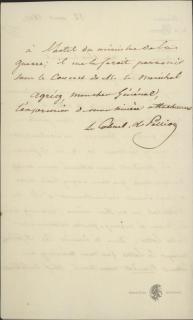 à l'hôtel du ministre de la
guerre; il me le ferait parvenir
sous le couvert de M. le Maréchal
agréez mon cher Général,
l'expression de mon sincère attachement
le Colonel de